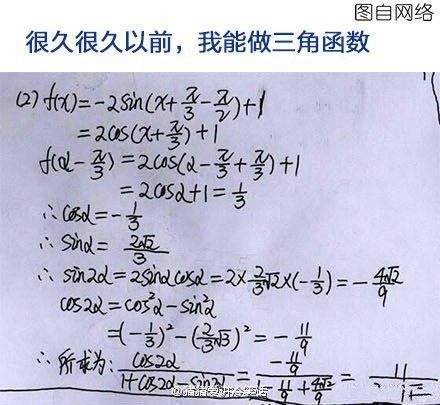 图自网络
很久很久以前，我能做三角函数
(2) f(x)=-2sin(x+π/3-π/2)+1
=2cos(x+π/3)+1
f(α-π/3)=2cos(α-π/3+π/3)+1
=2cosα+1=1/3
∴cosα=-1/3
∴sinα=2√2/3
∴sin2α=2sinαcosα=2×2/3√2×(-1/3)=-4√2/9
cos2α=cos²α-sin²α
=(-1/3)²-(2/3√3)²=-11/9
∴所求为:cos2α/(1+cos2α-sin2α)=(-11/9)/(11/9+4√2/9)=11